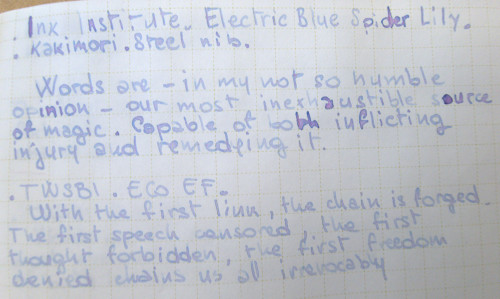 . Ink Institute. Electric Blue Spider Lily.
. Kakimori. Steel nib.
Words are - in my not so humble
opinion - our most inexhaustible source
of magic. Capable of both inflicting
injury and remedying it.
. TWSBI. ECO EF.
With the first link, the chain is forged.
The first speech censored, the first
thought forbidden, the first freedom
denied chains us all irrevocably